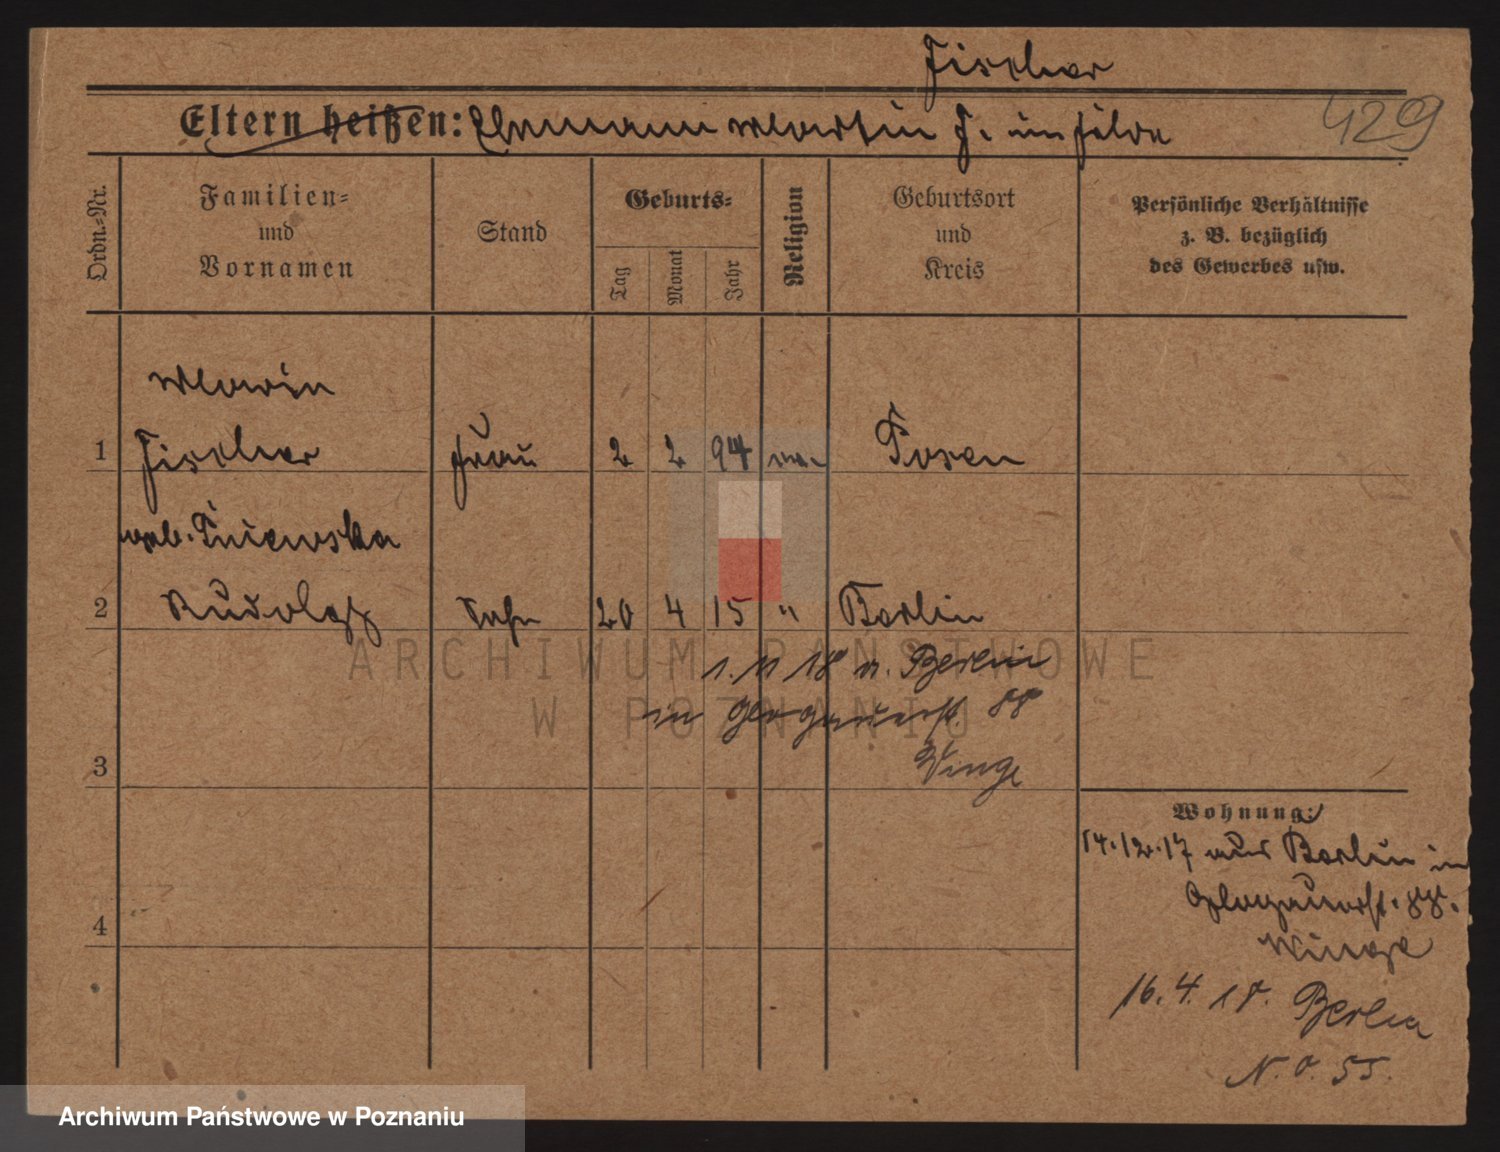 Fischer
429
Eltern heißen: Ehemann Martin F. im Felde
Ordn.-Nr.
Familien-
und
Vornamen
Stand
Geburts-
Tag
Monat
Jahr
Religion
Geburtsort
und
Kreis
Persönliche Verhältnisse
z. B. bezüglich
des Gewerbes usw.
Maria
1 Fischer Frau 2 2 94 Posen
geb. Pniewska
2 Rudolf Sohn 20 4 15 " Berlin
1. 11 18 v. Berlin
in Glogauerst. 88
3 Winge
Wohnung:
14.12.17 aus Berlin in
Glogauerst. 88.
Winge
4
16. 4. 18. Berlin
N. O. 55.
ARCHIWUM PAŃSTWOWE
W POZNANIU
Archiwum Państwowe w Poznaniu